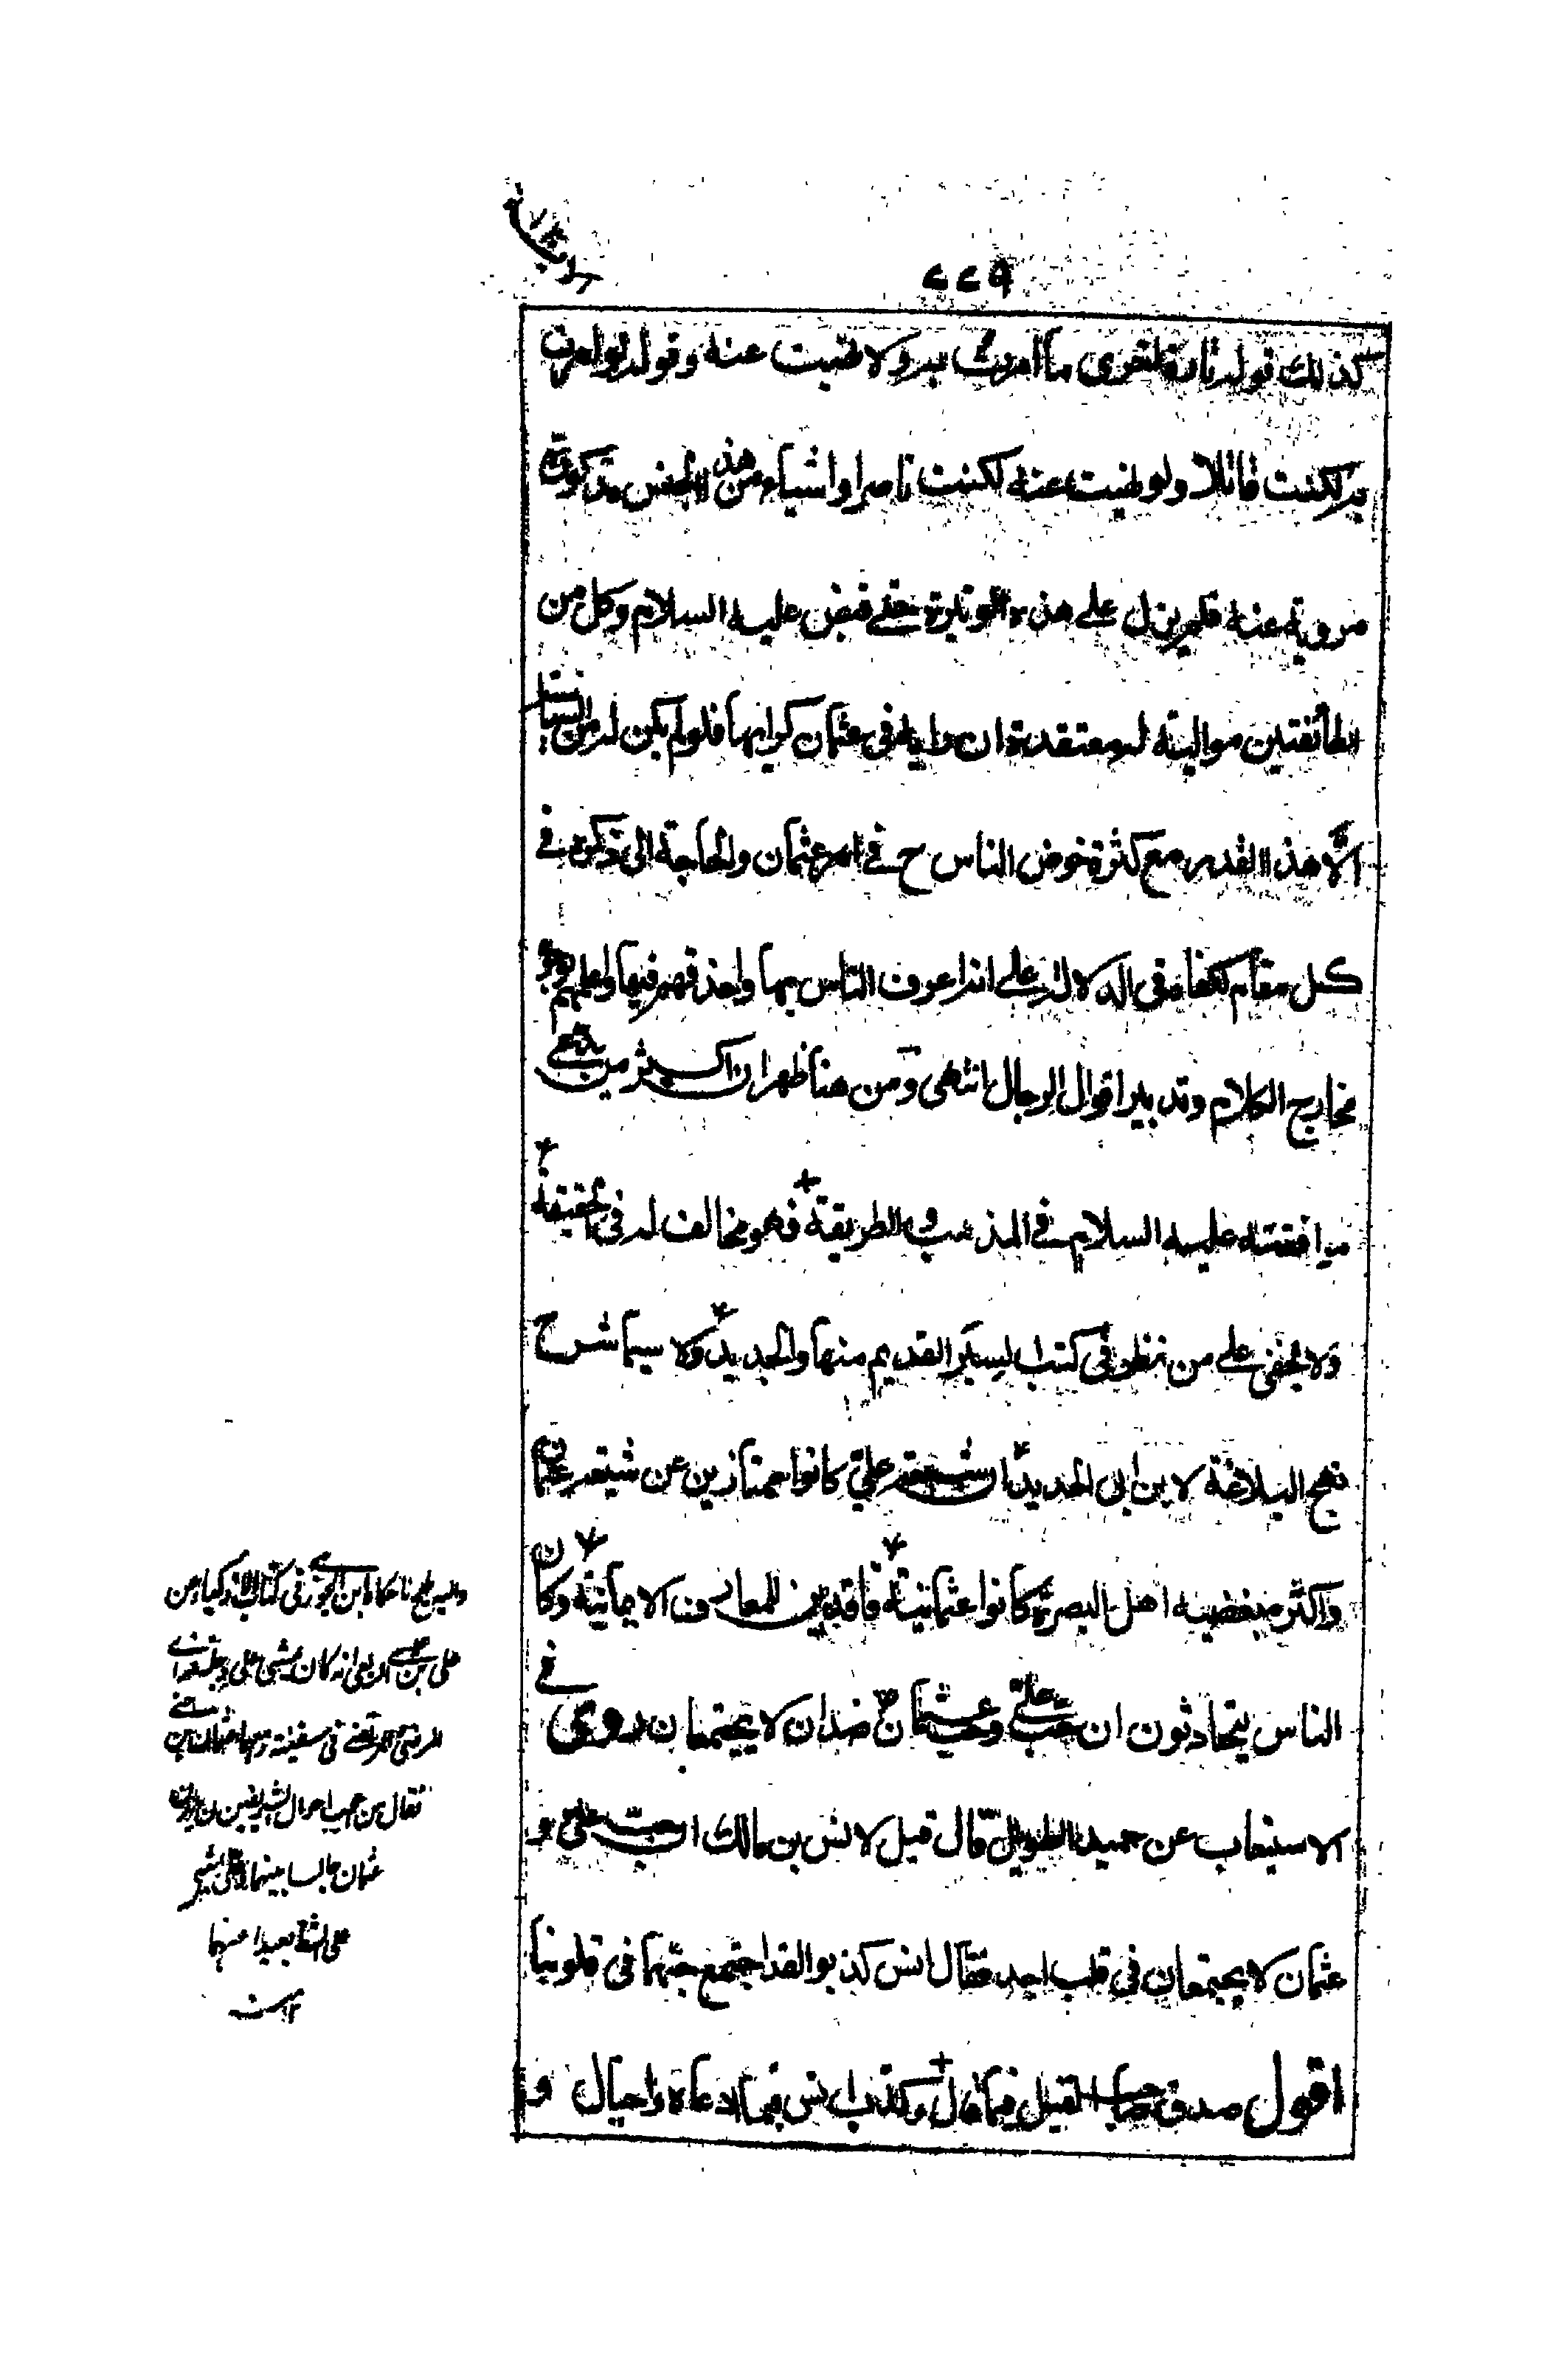 ٢٢٩
كذلك قوله تارة اخرى ما أمرت به ولا نهيت عنه وقوله لو امرت
به لكنت قاتلا ولو نهيت عنه لكنت ناصرا واشياء من هذا الجنس مذكورة
مروية عنه فلم يزل على هذه الوتيرة حتى قبض عليه السلام وكل من
الطائفتين موالية له معتقدة ان رايه في عثمان كرايها فلو لم يكن له من السياسة
الّا هذا القدر مع كثرة خوض الناس ح في امر عثمان والحاجة الى ذكره في
كل مقام لكفاه في الدلالة على انه اعرف الناس بها واحذقهم فيها واعلمهم بوجوه
مخارج الكلام وتدبير اقوال الرجال انتهى ومن هنا ظهر ان اكثر من يدّعي
موافقته عليه السلام في المذهب والطريقة فهو مخالف له في الحقيقة
ولا يخفى على من نظر في كتب السير القديم منها والجديد ولا سيما شرح
نهج البلاغة لابن ابي الحديد ان شيعة علي كانوا ممتازين عن شيعة عثمان
واكثر مبغضيه اهل البصرة كانوا عثمانية فاقدين للمعارف الايمانية وكان
الناس يتحادثون ان حب علي وحب عثمان ضدان لا يجتمعان روى في
الاستيعاب عن حميد الطويل قال قيل لانس بن مالك ان حب علي و
عثمان لا يجتمعان في قلب احد فقال انس كذبوا لقد اجتمع حبهما في قلوبنا
اقول صدق صاحب القيل فيما قال وكذب انس فيما ادعاه واحال و
واليه يلمح ما حكاه ابن الجوزي في كتاب الاذكياء من
على بن عيسى الربعي انه كان يمشي على دجلة فراى
الرضي والمرتضى في سفينة ومعهما عثمان بن جني
فقال من عجب احوال الشريفين ان يكون
عثمان جالسا بينهما وعلي يمشي
على الشط بعيدا عنهما